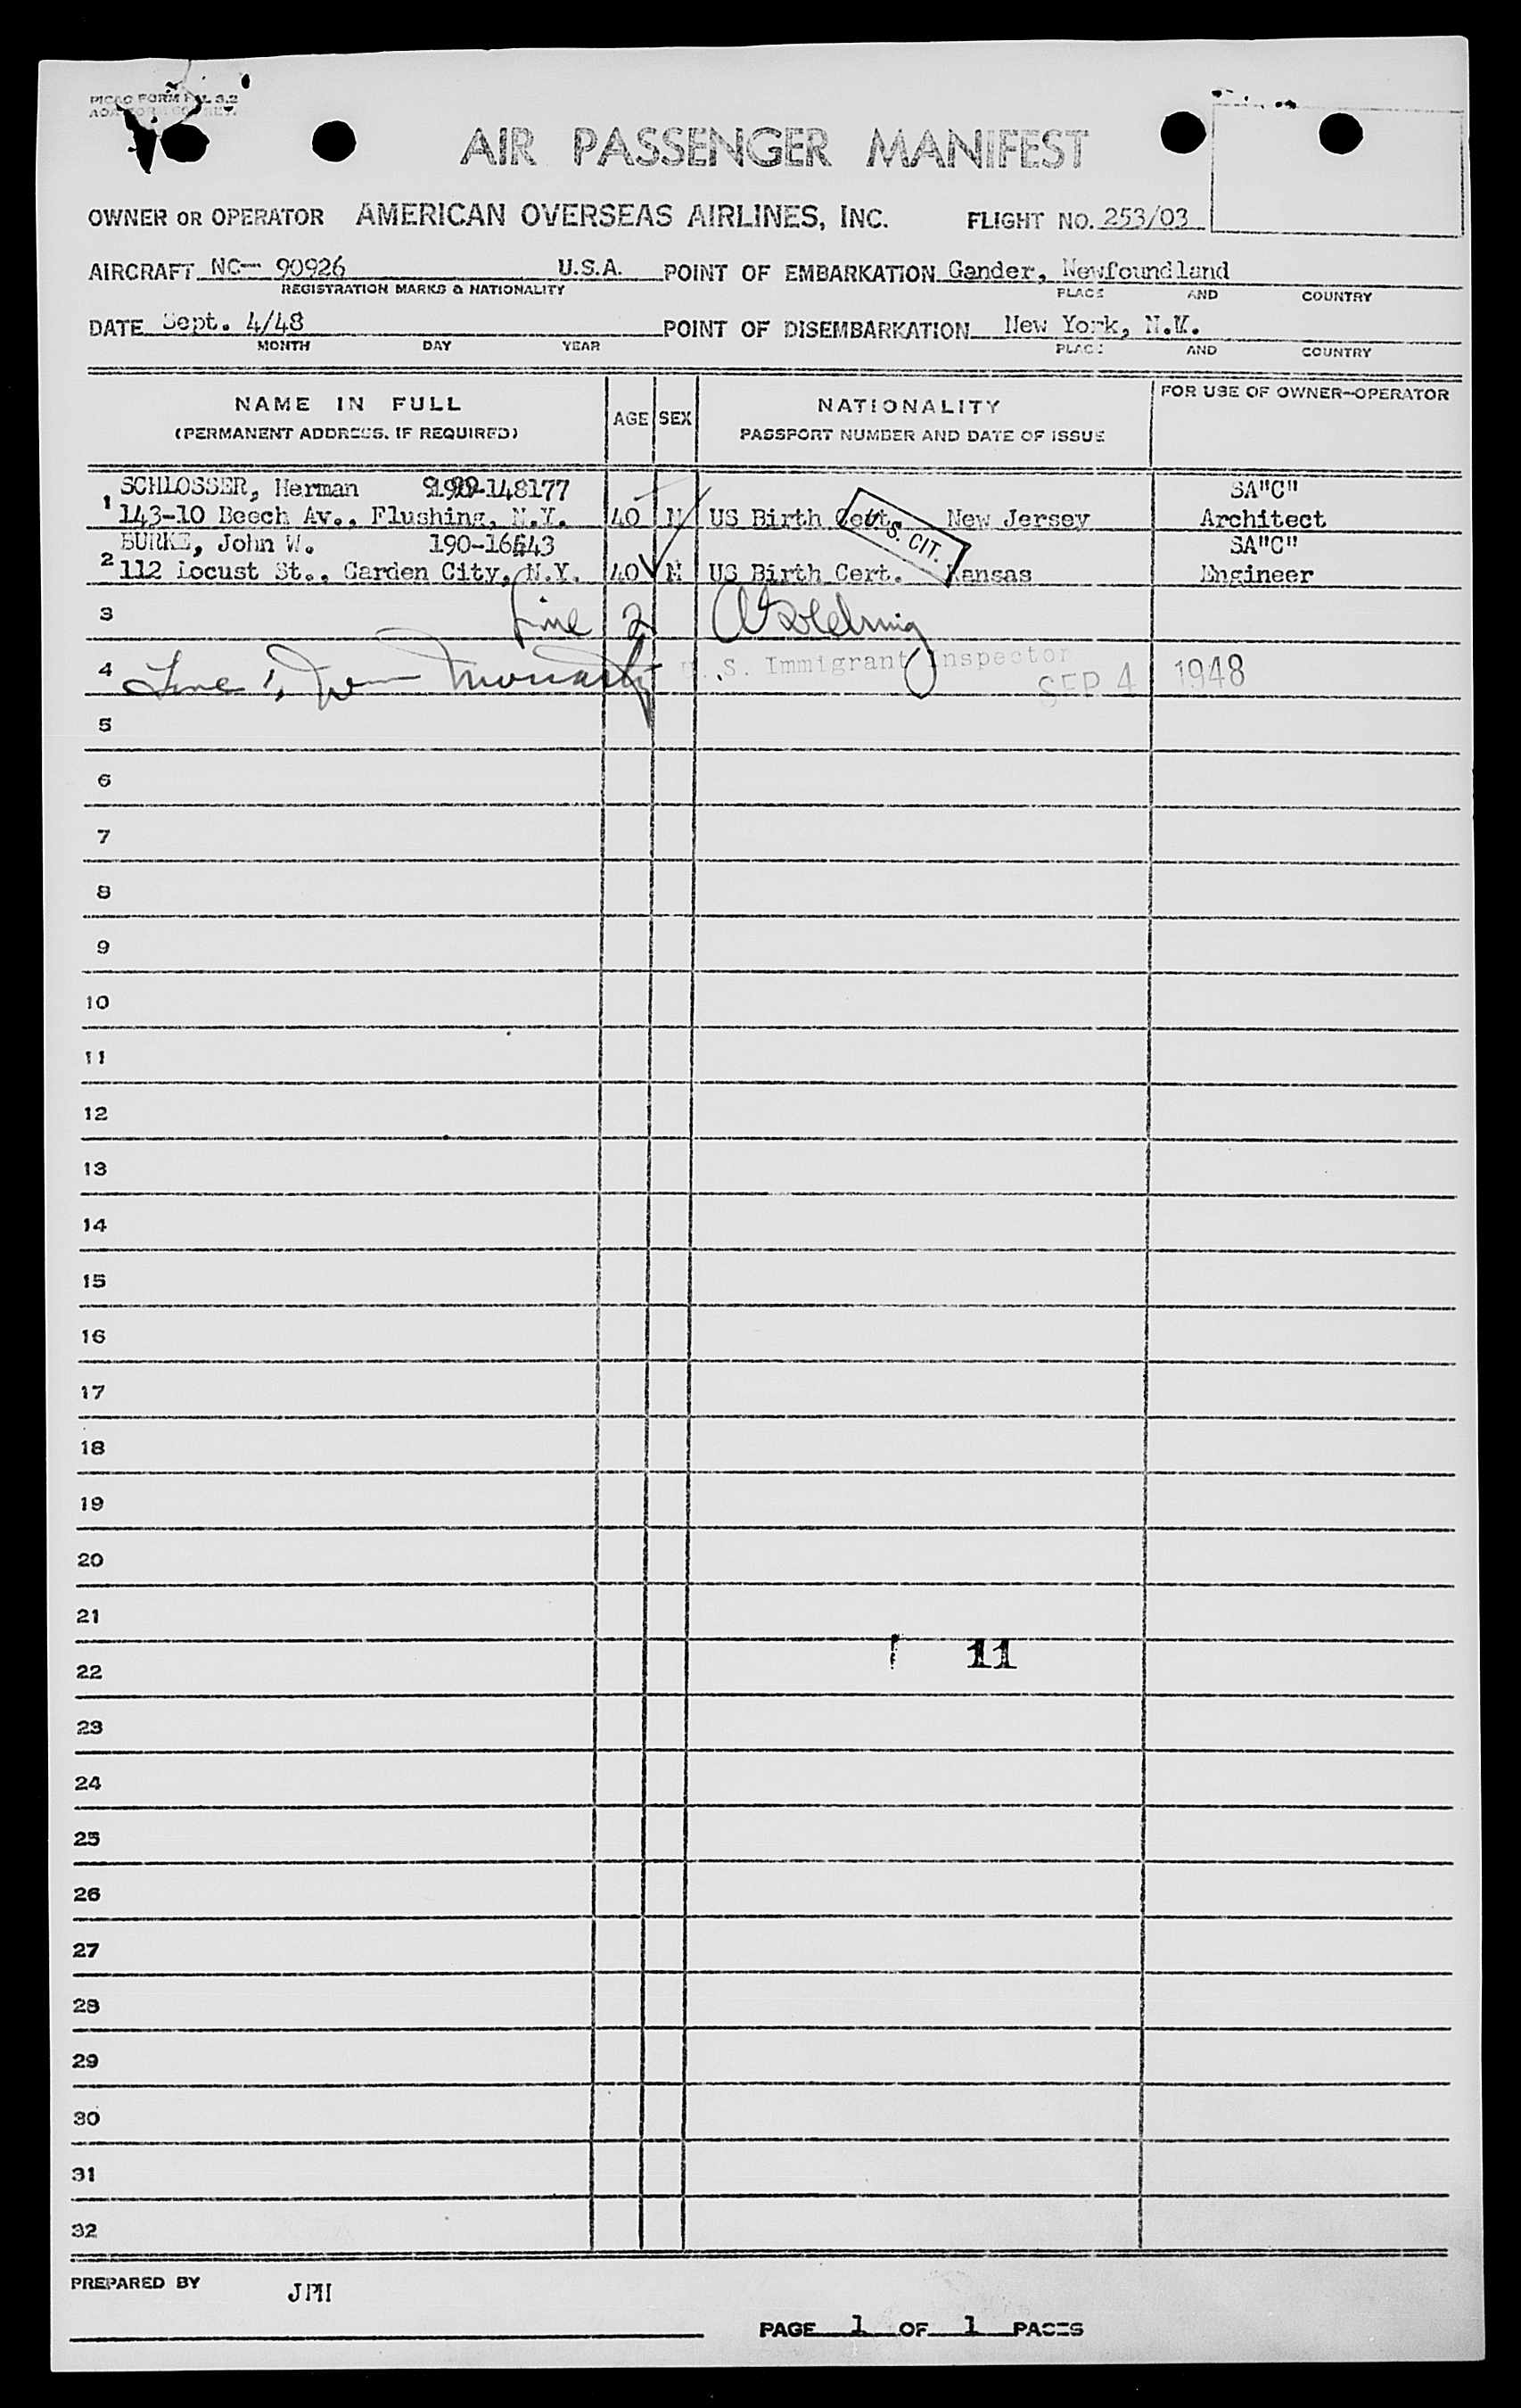 PICAO FORM FAL 3.2
AIR PASSENGER MANIFEST
OWNER OR OPERATOR AMERICAN OVERSEAS AIRLINES, INC. FLIGHT NO. 253/03
AIRCRAFT NC- 90926 U.S.A. POINT OF EMBARKATION Gander, Newfoundland
REGISTRATION MARKS & NATIONALITY PLACE AND COUNTRY
DATE Sept. 4/48 POINT OF DISEMBARKATION New York, N.Y.
MONTH DAY YEAR PLACE AND COUNTRY
NAME IN FULL AGE SEX NATIONALITY FOR USE OF OWNER-OPERATOR
(PERMANENT ADDRESS, IF REQUIRED) PASSPORT NUMBER AND DATE OF ISSUE
SCHLOSSER, Herman 190-148177 SA"C"
1 143-10 Beech Av., Flushing, N.Y. 40 M US Birth Cert. New Jersey Architect
U.S. CIT.
BURKE, John W. SA"C"
2 112 Locust St., Garden City, N.Y. 40 M US Birth Cert. Kansas Engineer
3 Line 2
4 Line 1, U.S. Immigrant Inspector SEP 4 1948
5
6
7
8
9
10
11
12
13
14
15
16
17
18
19
20
21
22 11
23
24
25
26
27
28
29
30
31
32
PREPARED BY JPH
PAGE 1 OF 1 PAGES